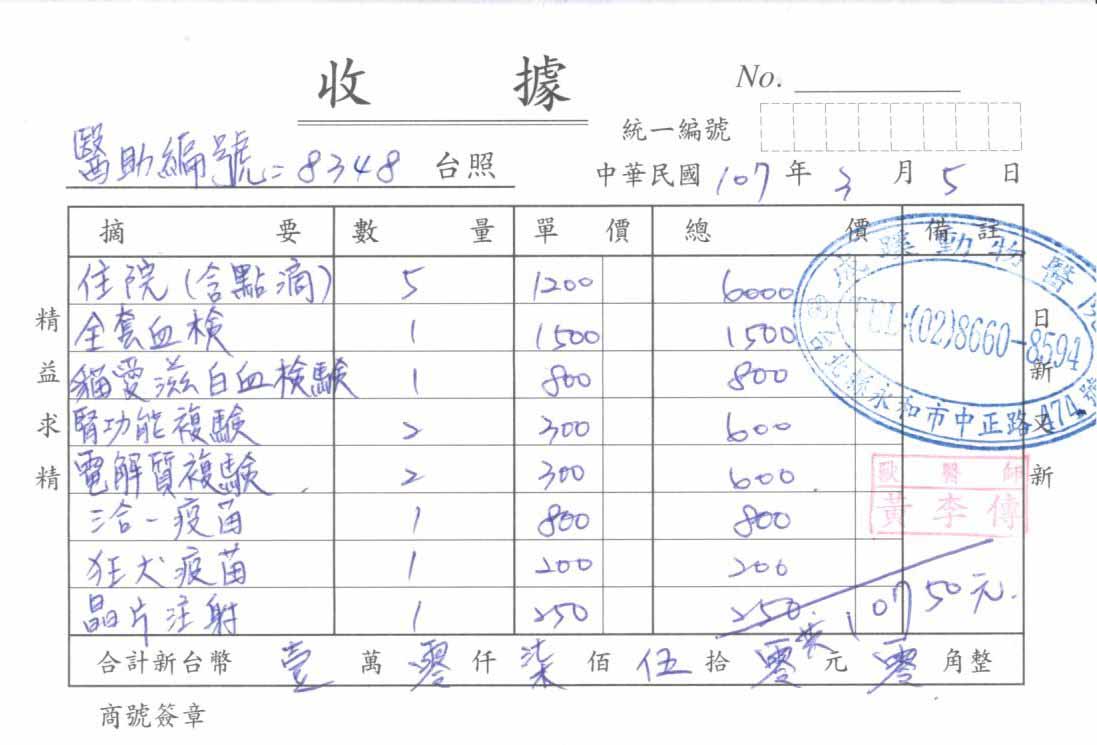 收 據
No.
統一編號
醫助編號:8348 台照
中華民國 107 年 3 月 5 日
摘要 數量 單價 總價 備註
住院(含點滴) 5 1200 6000
全套血檢 1 1500 1500
貓愛滋白血檢驗 1 800 800
腎功能複驗 2 300 600
電解質複驗 2 300 600
三合一疫苗 1 800 800
狂犬疫苗 1 200 200
晶片注射 1 250 250
10750元.
合計新台幣 壹 萬 零 仟 柒 佰 伍 拾 零 元 零 角整
商號簽章
精益求精
日新又新
動物醫院
TEL:(02)8660-8594
北縣永和市中正路474號
獸醫師
黃李傳